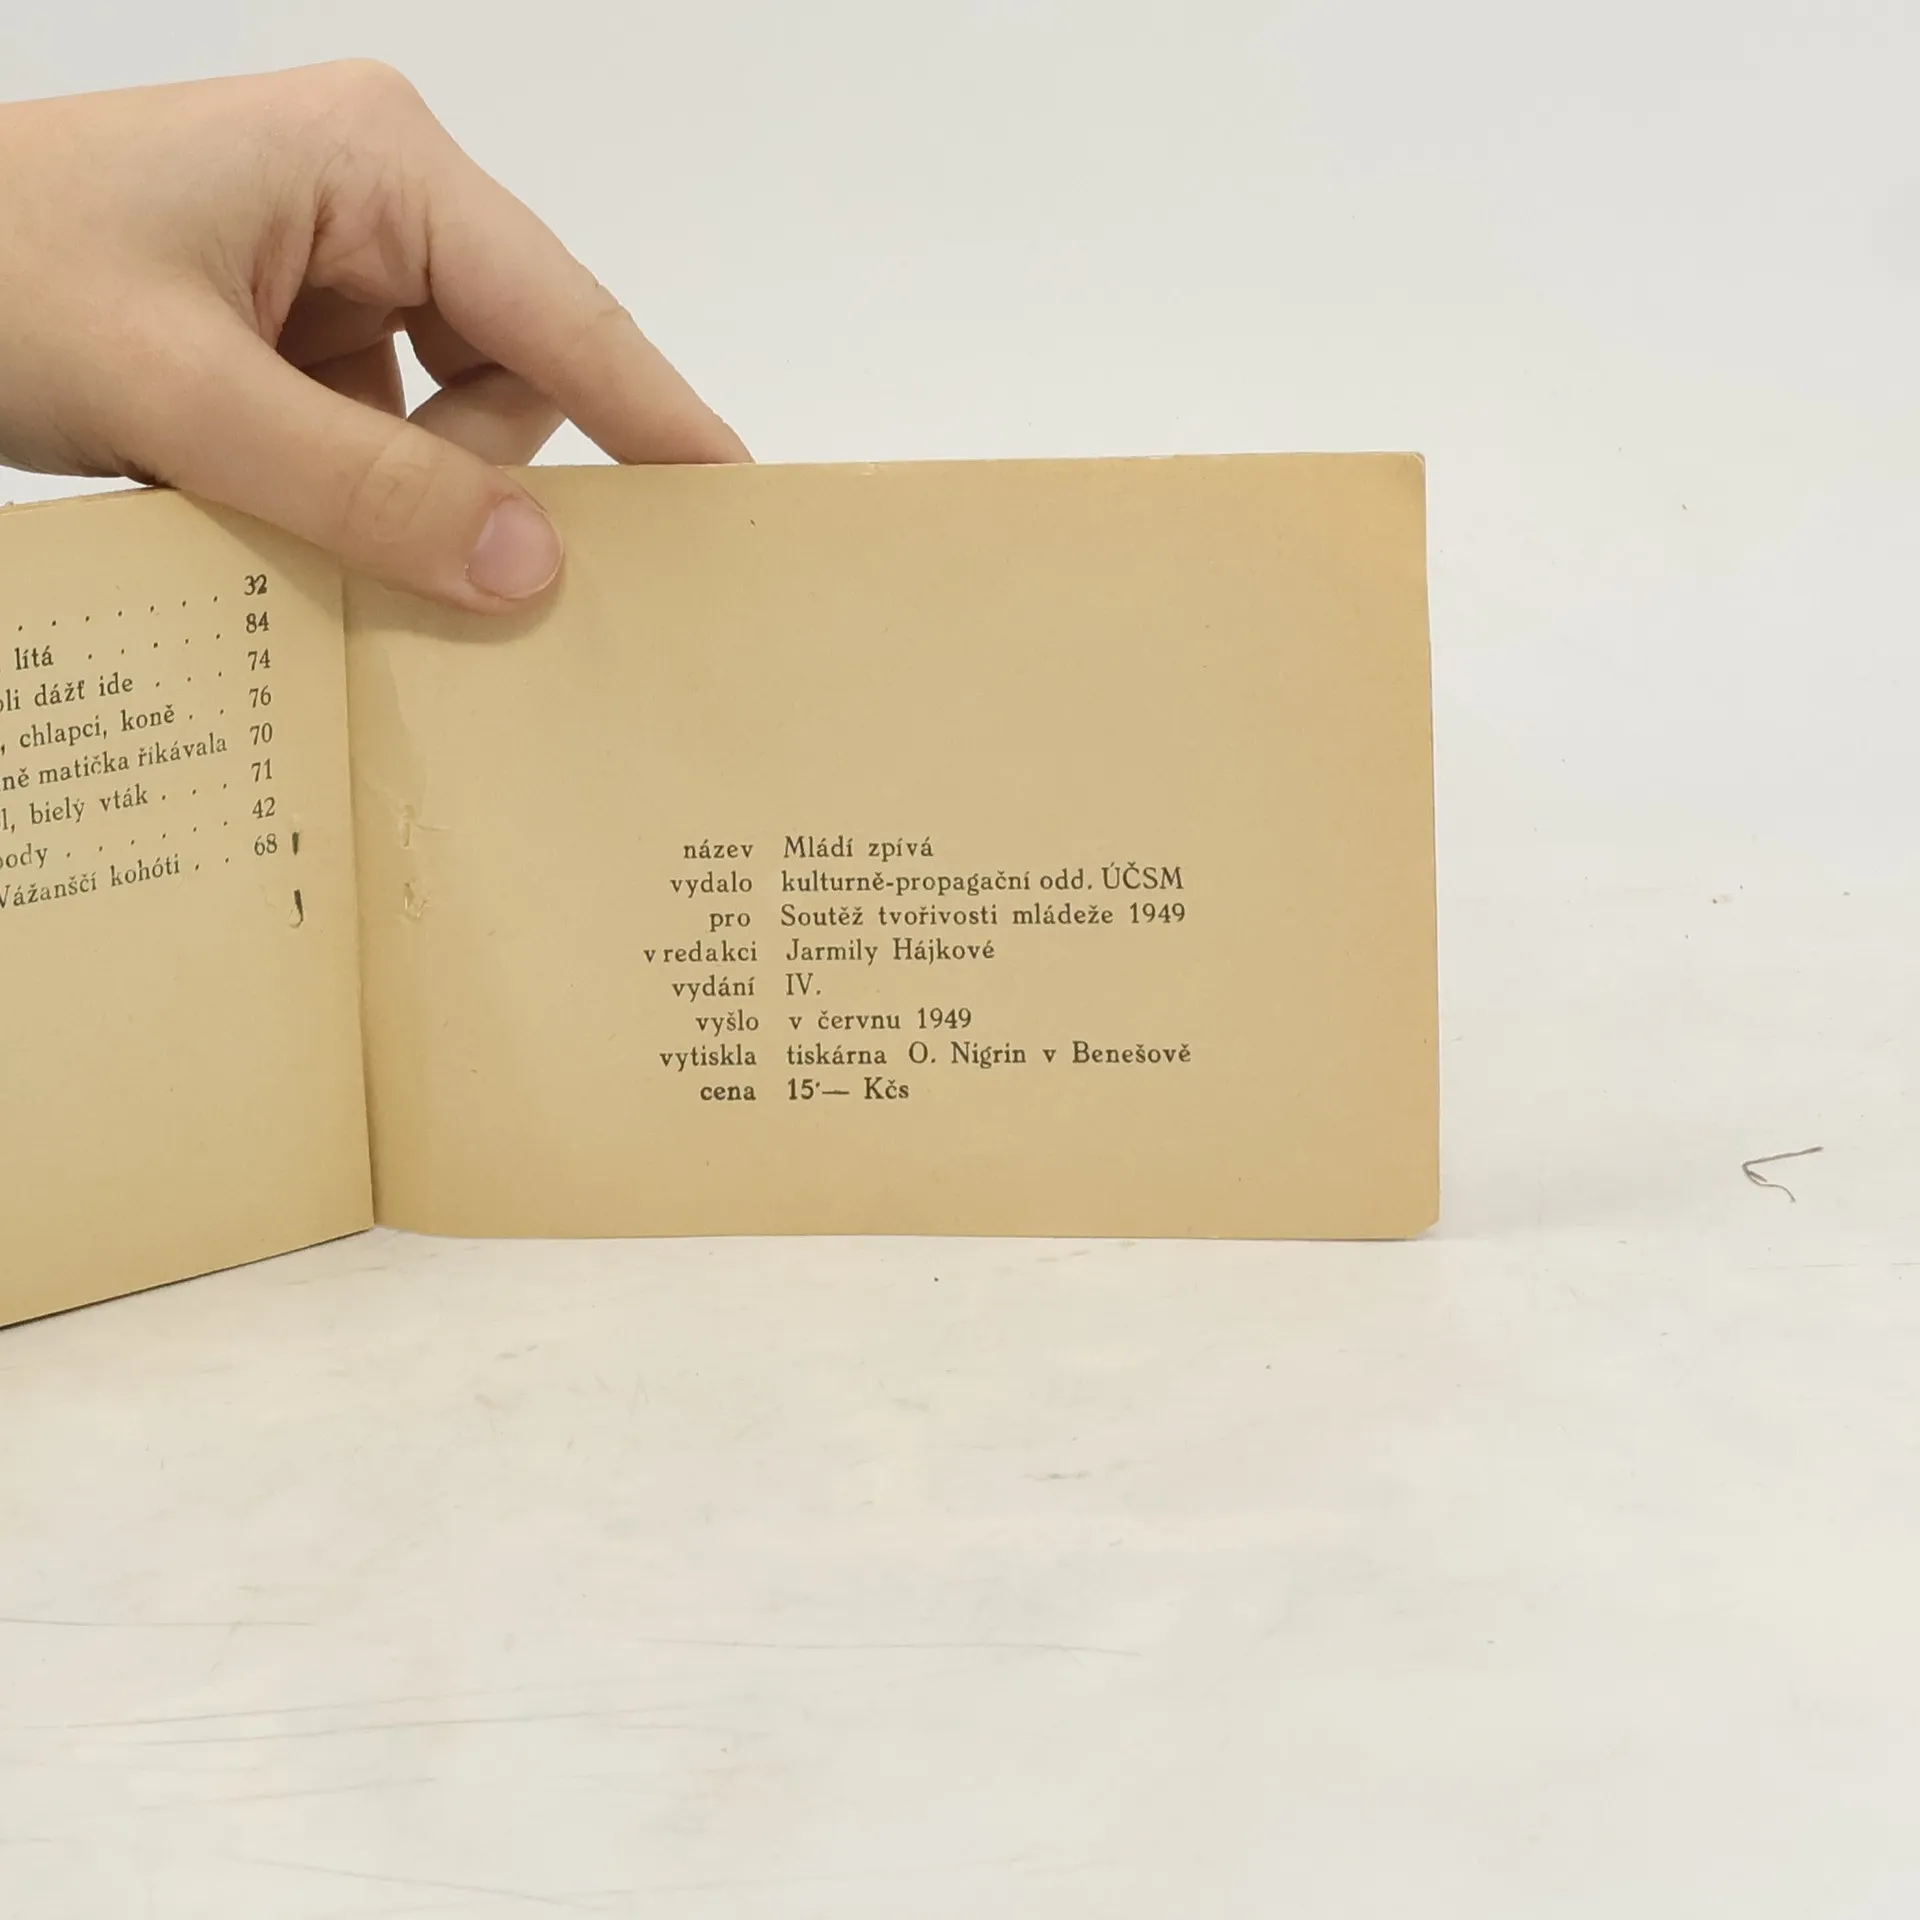 32
lítá . . . . . 84
dážť ide . . . 74
, chlapci, koně . . 76
matička říkávala 70
, bielý vták . . . 71
. . . . . . 42
Vážanščí kohóti . . 68
název Mládí zpívá
vydalo kulturně-propagační odd. ÚČSM
pro Soutěž tvořivosti mládeže 1949
v redakci Jarmily Hájkové
vydání IV.
vyšlo v červnu 1949
vytiskla tiskárna O. Nigrin v Benešově
cena 15·— Kčs